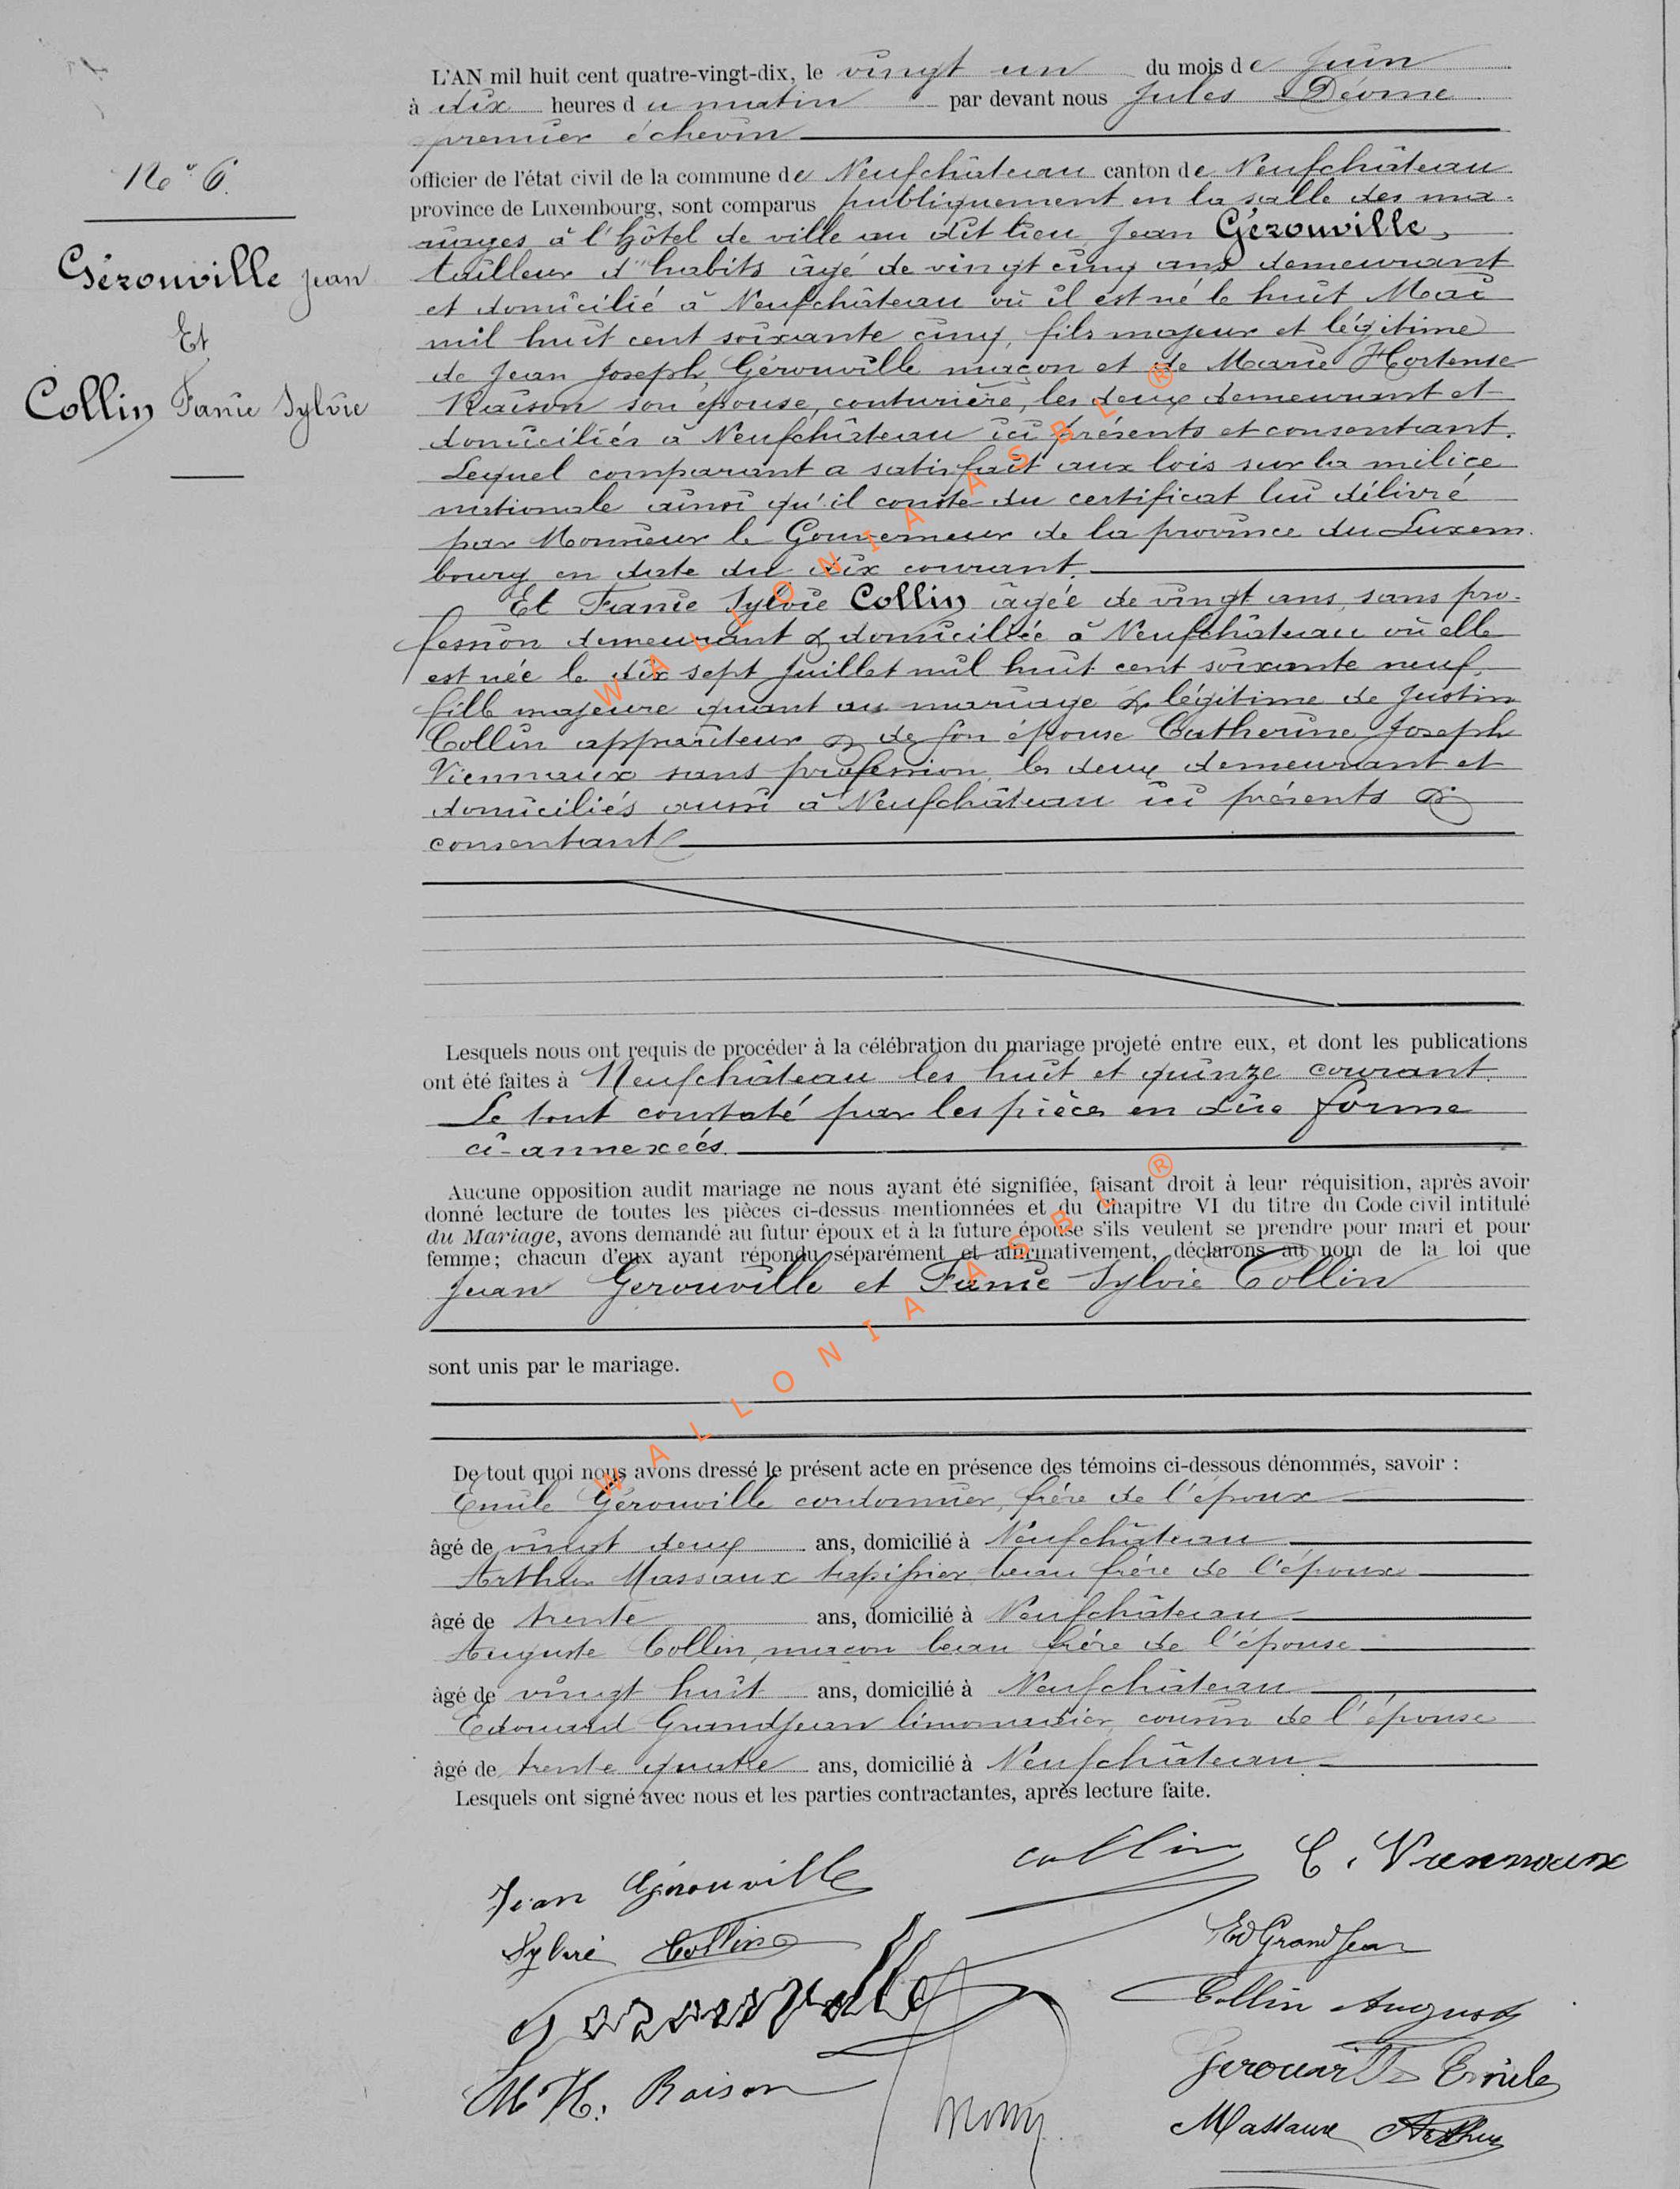 L'AN mil huit cent quatre-vingt-dix, le vingt un du mois de Juin
à dix heures du matin par devant nous Jules
premier échevin
officier de l'état civil de la commune de Neufchâteau canton de Neufchâteau
province de Luxembourg, sont comparus publiquement en la salle des ma-
riages à l'hôtel de ville au dit lieu, Jean Gérouville,
tailleur d'habits âgé de vingt cinq ans demeurant
et domicilié à Neufchâteau où il est né le huit Mai
mil huit cent soixante cinq, fils majeur et légitime
de Jean Joseph Gérouville maçon et de Marie Hortense
Raison son épouse, couturière, les deux demeurant et
domiciliés à Neufchâteau ici présents et consentant.
Lequel comparant a satisfait aux lois sur la milice
nationale ainsi qu'il conste du certificat lui délivré
par Monsieur le Gouverneur de la province du Luxem-
bourg en date du dix courant.
Et Fanie Sylvie Collin âgée de vingt ans, sans pro-
fession demeurant & domiciliée à Neufchâteau où elle
est née le dix sept Juillet mil huit cent soixante neuf,
fille majeure quant au mariage & légitime de Justin
Collin appariteur & de son épouse Catherine Joseph
Viennaux sans profession, les deux demeurant et
domiciliés aussi à Neufchâteau ici présents &
consentant
N° 6.
Gérouville Jean
Et
Collin Fanie Sylvie
Lesquels nous ont requis de procéder à la célébration du mariage projeté entre eux, et dont les publications
ont été faites à Neufchâteau les huit et quinze courant.
Le tout constaté par les pièces en due forme
ci-annexées.
Aucune opposition audit mariage ne nous ayant été signifiée, faisant droit à leur réquisition, après avoir
donné lecture de toutes les pièces ci-dessus mentionnées et du Chapitre VI du titre du Code civil intitulé
du Mariage, avons demandé au futur époux et à la future épouse s'ils veulent se prendre pour mari et pour
femme; chacun d'eux ayant répondu séparément et affirmativement, déclarons au nom de la loi que
Jean Gerouville et Fanie Sylvie Collin
sont unis par le mariage.
De tout quoi nous avons dressé le présent acte en présence des témoins ci-dessous dénommés, savoir :
Emile Gérouville cordonnier, frère de l'époux
âgé de vingt deux ans, domicilié à Neufchâteau
Arthur Massaux tapissier beau frère de l'époux
âgé de trente ans, domicilié à Neufchâteau
Auguste Collin, maçon beau frère de l'épouse
âgé de vingt huit ans, domicilié à Neufchâteau
Edouard Grandjean limonadier cousin de l'épouse
âgé de trente quatre ans, domicilié à Neufchâteau
Lesquels ont signé avec nous et les parties contractantes, après lecture faite.
Jean Gérouville
Collin
C. Viennaux
Sylvie Collin
Ed Grandjean
Gerouville
Collin Auguste
M H. Raison
Gerouville Emile
Massaux Arthur
WALLONIA ASBL ®
WALLONIA ASBL ®